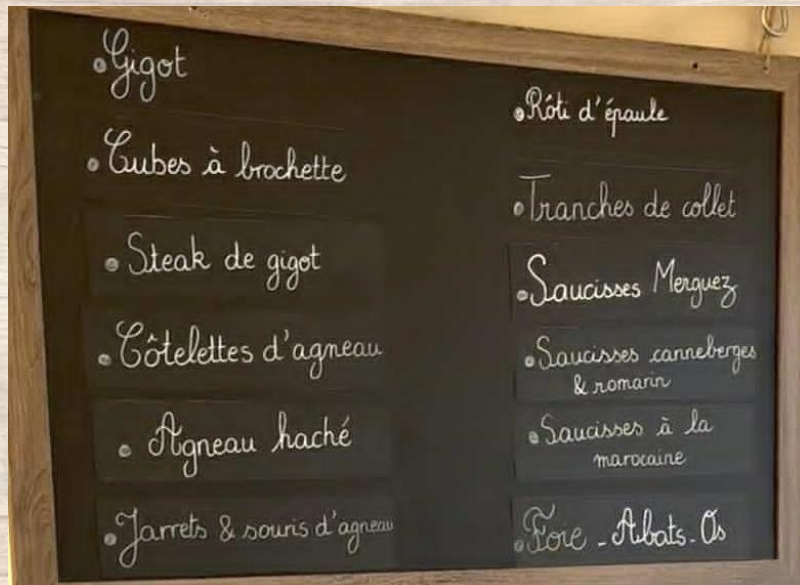 Gigot
Cubes à brochette
Steak de gigot
Côtelettes d'agneau
Agneau haché
Jarrets & souris d'agneau
Rôti d'épaule
Tranches de collet
Saucisses Merguez
Saucisses canneberges
& romarin
Saucisses à la
marocaine
Foie - Abats - Os